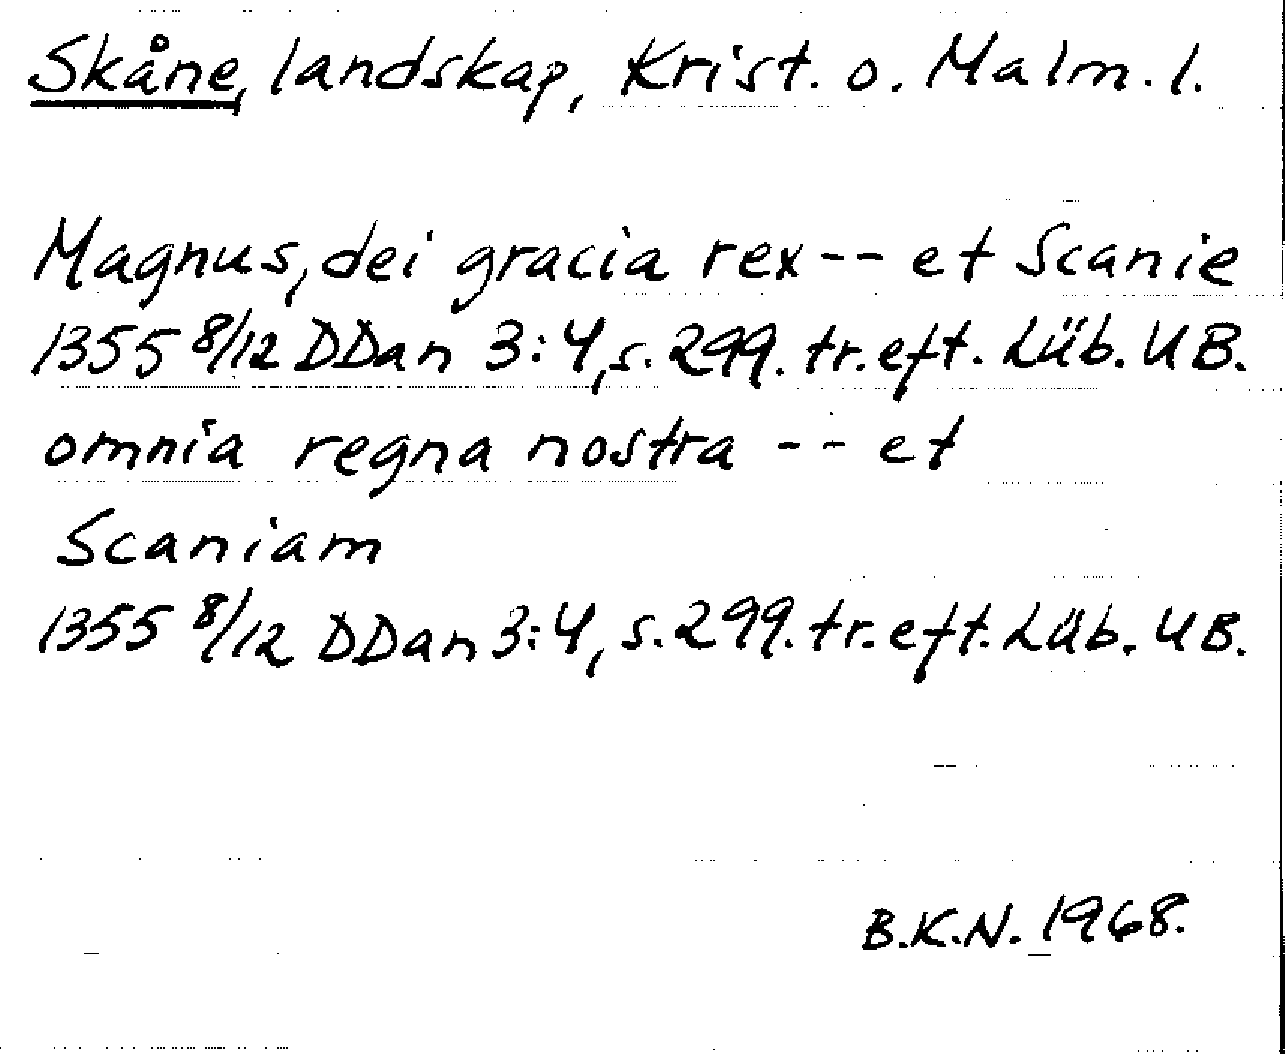 Skåne, landskap, Krist. o. Malm. l.
Magnus, dei gracia rex -- et Scanie
1355 8/12 DDan 3:4, s. 299. tr. eft. Lüb. UB.
omnia regna nostra -- et
Scaniam
1355 8/12 DDan 3:4, s. 299. tr. eft. Lüb. UB.
B.K.N. 1968.